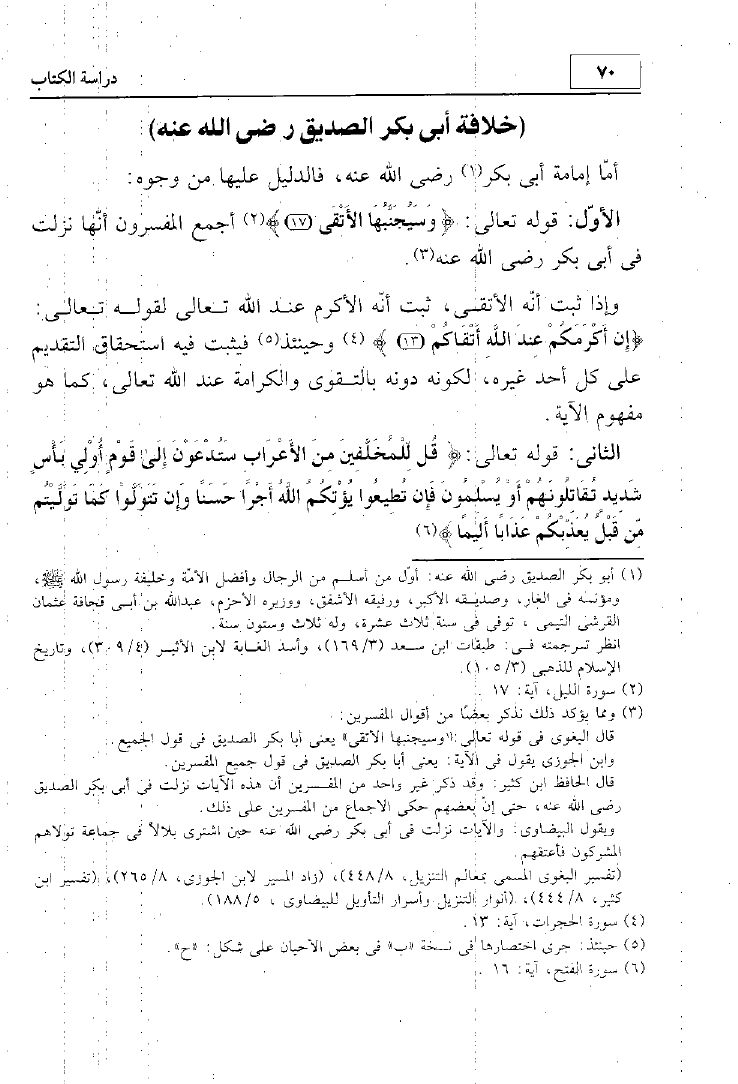 ٧٠
دراسة الكتاب
(خلافة أبى بكر الصديق رضى الله عنه)
أمّا إمامة أبى بكر(١) رضى الله عنه، فالدليل عليها من وجوه:
الأوّل: قوله تعالى: ﴿ وَسَيُجَنَّبُهَا الأَتْقَى (١٧) ﴾(٢) أجمع المفسرون أنّها نزلت
فى أبى بكر رضى الله عنه(٣).
وإذا ثبت أنّه الأتقى، ثبت أنّه الأكرم عند الله تعالى لقوله تعالى:
﴿إِن أَكْرَمَكُمْ عِندَ اللَّه أَتْقَاكُمْ (١٣) ﴾ (٤) وحينئذ(٥) فيثبت فيه استحقاق التقديم
على كل أحد غيره، لكونه دونه بالتقوى والكرامة عند الله تعالى، كما هو
مفهوم الآية.
الثانى: قوله تعالى: ﴿ قُل لِّلْمُخَلَّفِينَ مِنَ الأَعْرَابِ سَتُدْعَوْنَ إِلَىٰ قَوْمٍ أُوْلِي بَأْسٍ
شَدِيدٍ تُقَاتِلُونَهُمْ أَوْ يُسْلِمُونَ فَإِن تُطِيعُوا يُؤْتِكُمُ اللَّهُ أَجْرًا حَسَنًا وَإِن تَتَوَلَّوْا كَمَا تَوَلَّيْتُم
مِّن قَبْلُ يُعَذِّبْكُمْ عَذَابًا أَلِيمًا ﴾(٦)
(١) أبو بكر الصديق رضى الله عنه: أوّل من أسلم من الرجال وأفضل الأمّة وخليفة رسول الله ﷺ،
ومؤنسه فى الغار، وصديقه الأكبر، ورفيقه الأشفق، ووزيره الأحزم، عبدالله بن أبى قحافة عثمان
القرشى التيمى، توفى فى سنة ثلاث عشرة، وله ثلاث وستون سنة.
انظر ترجمته فى: طبقات ابن سعد (١٦٩/٣)، وأسد الغابة لابن الأثير (٣٠٩/٤)، وتاريخ
الإسلام للذهبى (١٠٥/٣).
(٢) سورة الليل، آية: ١٧ .
(٣) ومما يؤكد ذلك نذكر بعضًا من أقوال المفسرين:
قال البغوى فى قوله تعالى: «وسيجنبها الأتقى» يعنى أبا بكر الصديق فى قول الجميع.
وابن الجوزى يقول فى الآية: يعنى أبا بكر الصديق فى قول جميع المفسرين.
قال الحافظ ابن كثير: وقد ذكر غير واحد من المفسرين أن هذه الآيات نزلت فى أبى بكر الصديق
رضى الله عنه، حتى إنّ بعضهم حكى الاجماع من المفسرين على ذلك.
ويقول البيضاوى: والآيات نزلت فى أبى بكر رضى الله عنه حين اشترى بلالاً فى جماعة تولاهم
المشركون فأعتقهم.
(تفسير البغوى المسمى بمعالم التنزيل، ٤٤٨/٨)، (زاد المسير لابن الجوزى، ٢٦٥/٨)، (تفسير ابن
كثير، ٤٤٤/٨)، (أنوار التنزيل وأسرار التأويل للبيضاوى ، ١٨٨/٥).
(٤) سورة الحجرات، آية: ١٣ .
(٥) حينئذ: جرى اختصارها فى نسخة «ب» فى بعض الأحيان على شكل: «ح».
(٦) سورة الفتح، آية: ١٦ .